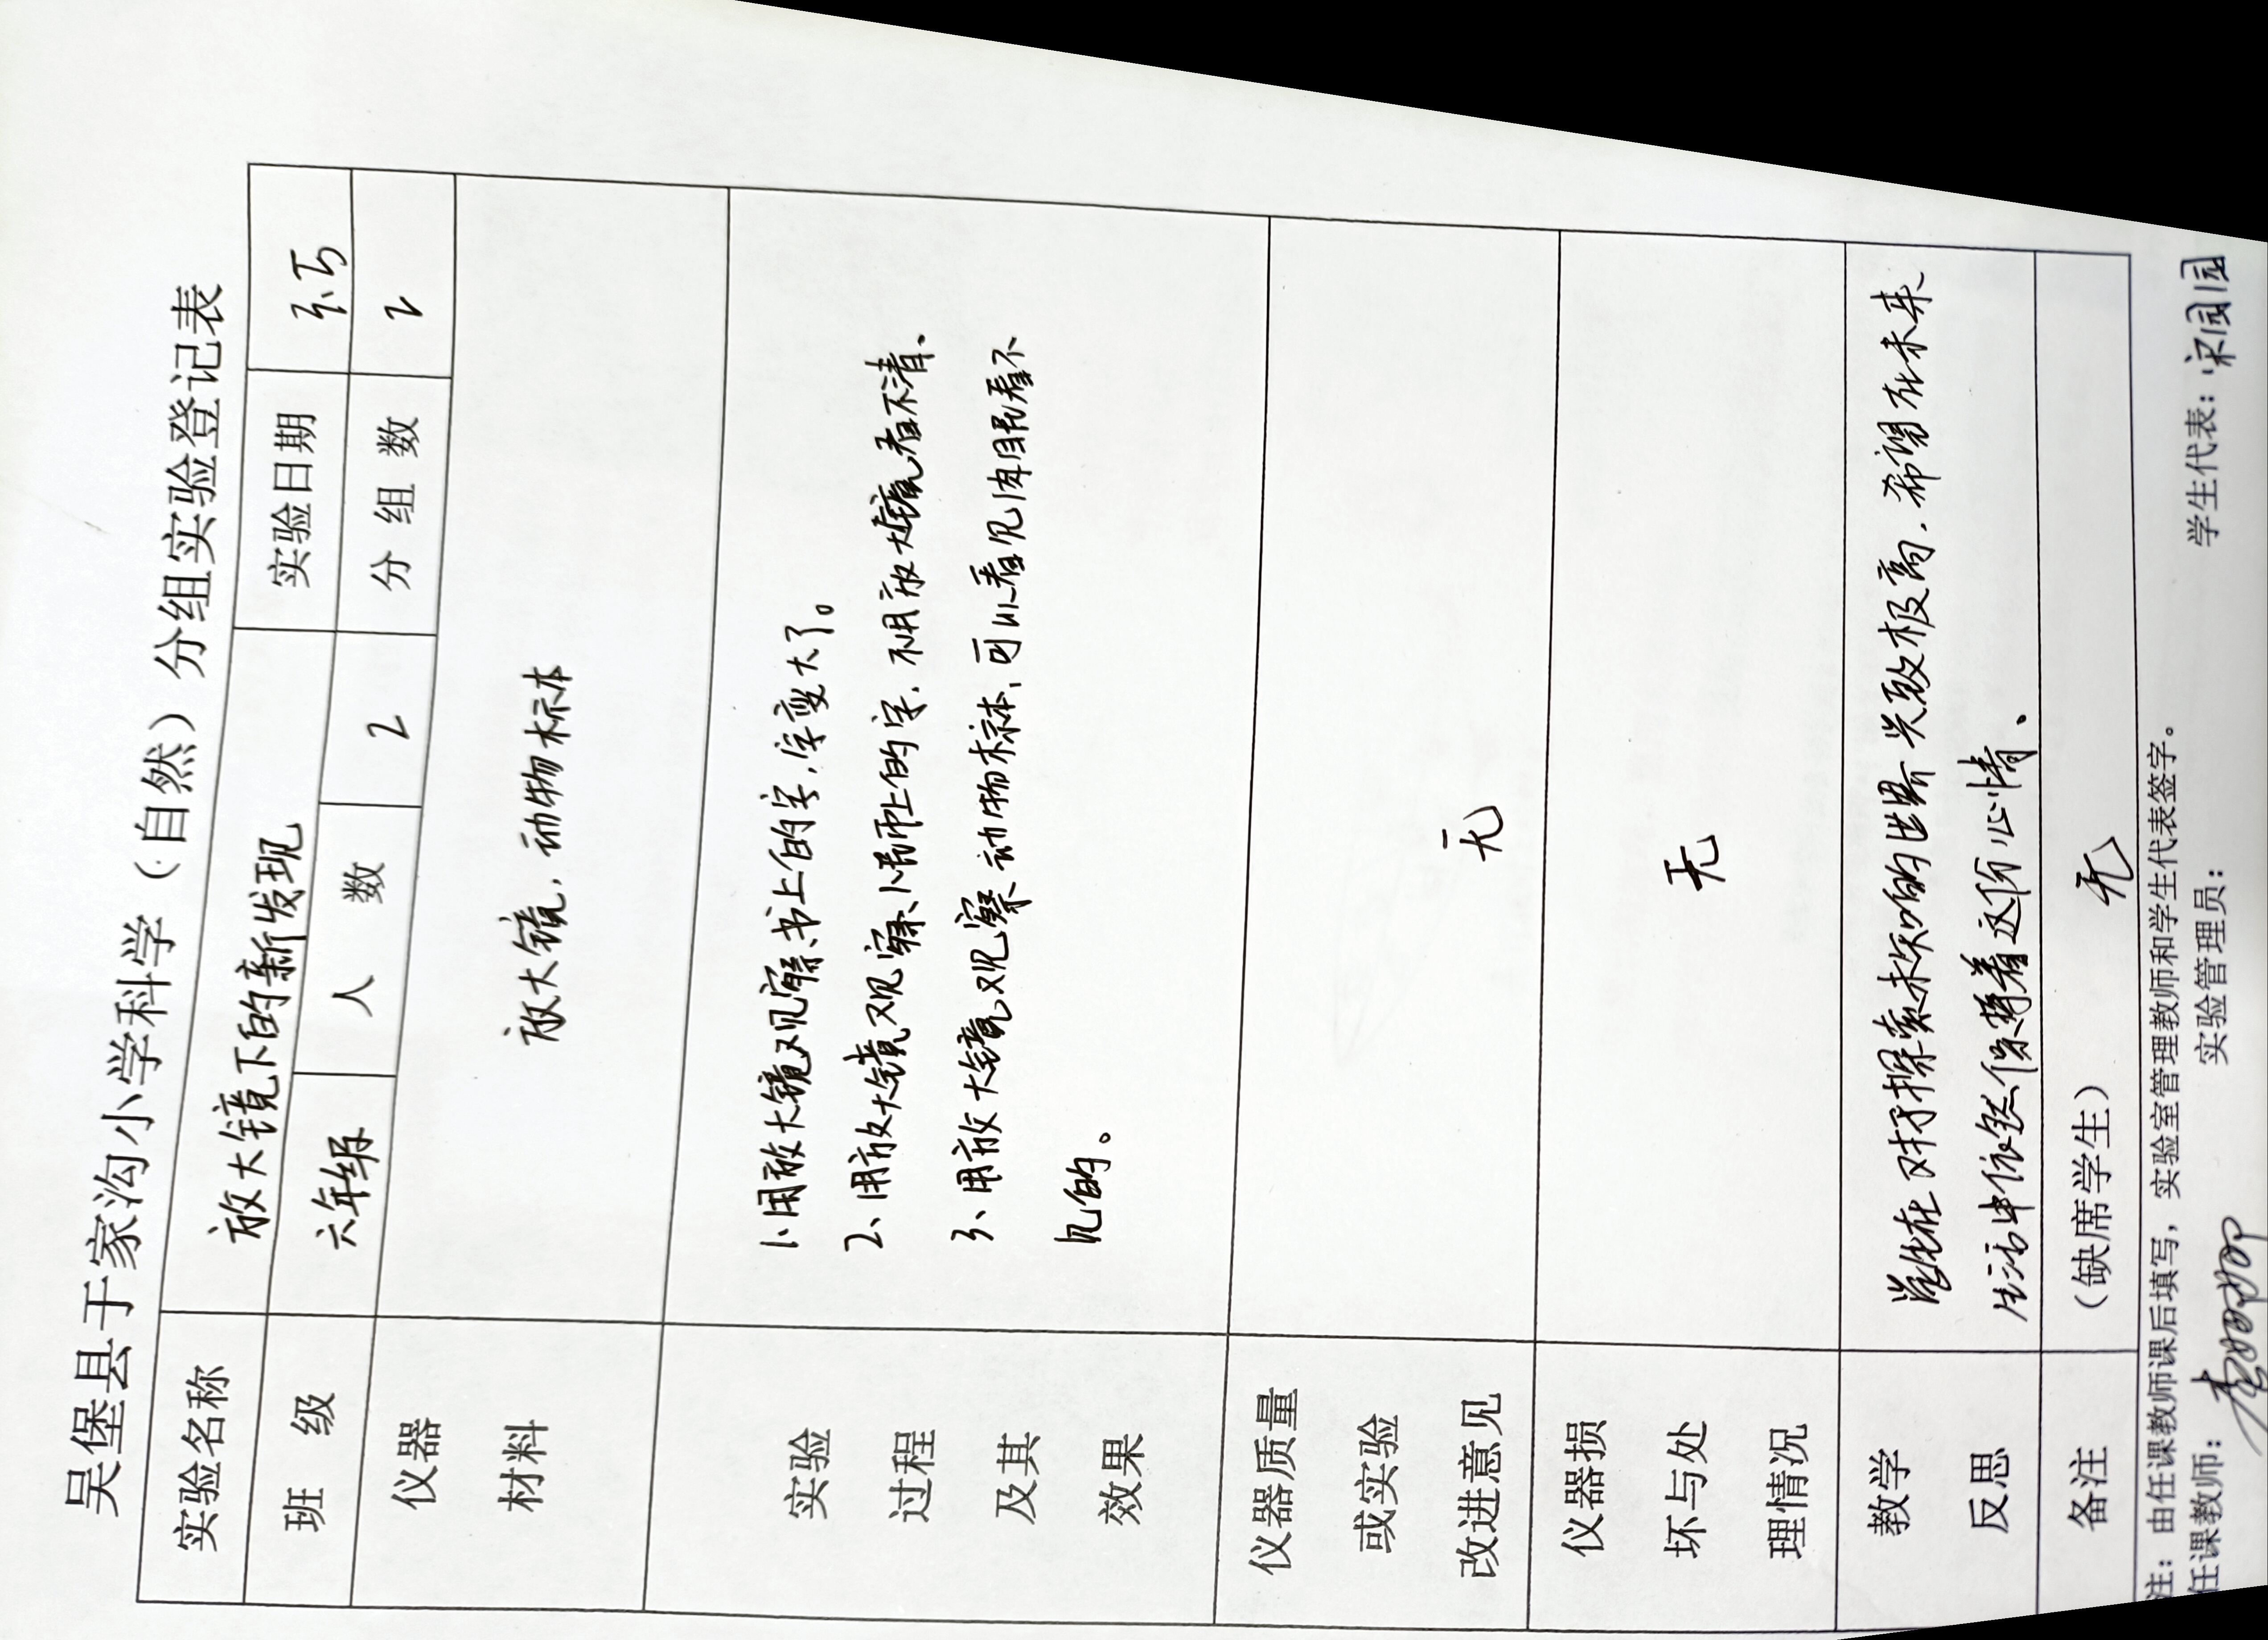 吴堡县于家沟小学科学（自然）分组实验登记表
实验名称 放大镜下的新发现 实验日期 3.5
班 级 六年级 人 数 2 分 组 数 2
仪器
材料
放大镜，动物标本
实验
过程
及其
效果
1、用放大镜观察书上的字，字变大了。
2、用放大镜观察、上的字，不用放大镜看不清、
3、用放大镜观察动物标本，可以看见肉眼看不
见的。
仪器质量
或实验
改进意见
无
仪器损
坏与处
理情况
无
教学
反思
学生在对于探索未知的世界兴致极高，希望在未来
生活中依然保持着这份心情、
备注 （缺席学生） 无
注：由任课教师课后填写，实验室管理教师和学生代表签字。
任课教师： 实验管理员： 学生代表：宋园园